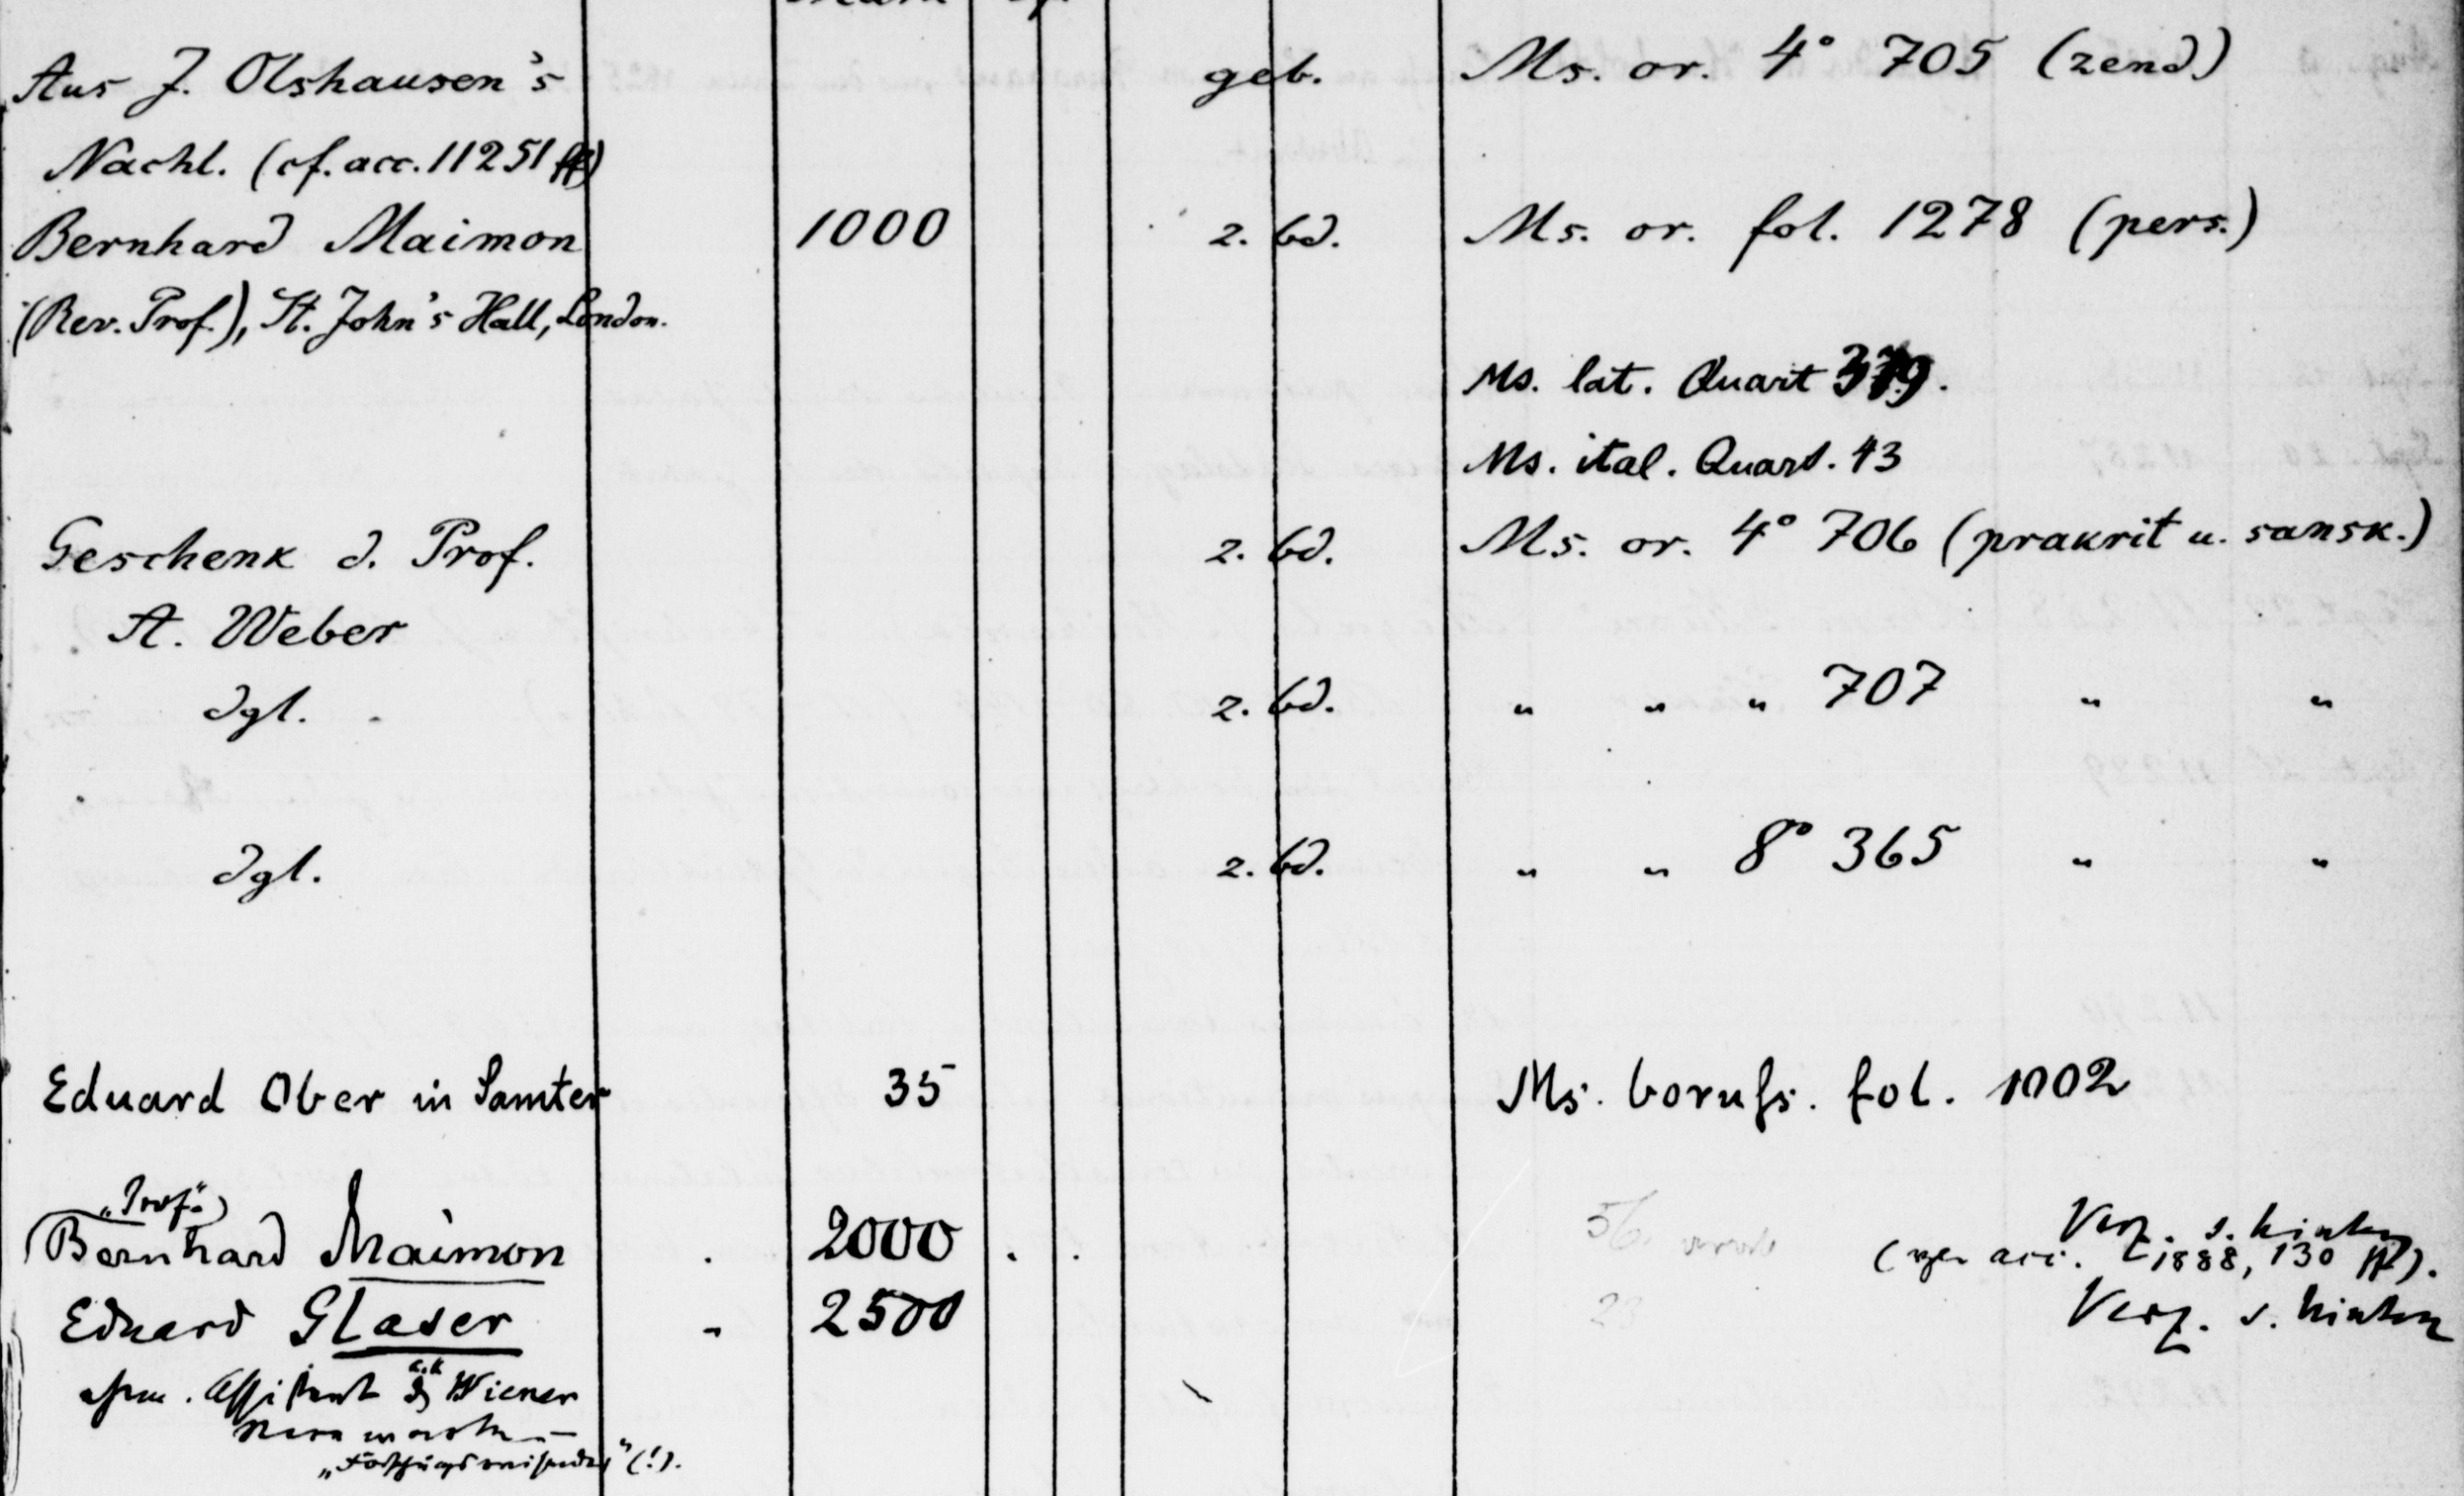 Aus J. Olshausen's geb. Ms. or. 4° 705 (zend.)
Nachl. (cf. acc. 11251 ff)
Bernhard Maimon 1000 z. bd. Ms. or. fol. 1278 (pers.)
(Rev. Prof.), St. John's Hall, London.
Ms. lat. Quart 379.
Ms. ital. Quart. 43
Geschenk d. Prof. z. bd. Ms. or. 4° 706 (prakrit u. sansk.)
A. Weber
dgl. z. bd. " " " 707 " "
dgl. z. bd. " " 8° 365 " "
Eduard Ober in Samter 35 Ms. boruss. fol. 1002
„Prof." Verz. s. hinten
Bernhard Maimon 2000 56 arab (acc. 1888, 130 ff).
Eduard Glaser 2500 23 Verz. s. hinten
Assistent d. Wiener
Sternwarte
„Forschungsreisender" (!).